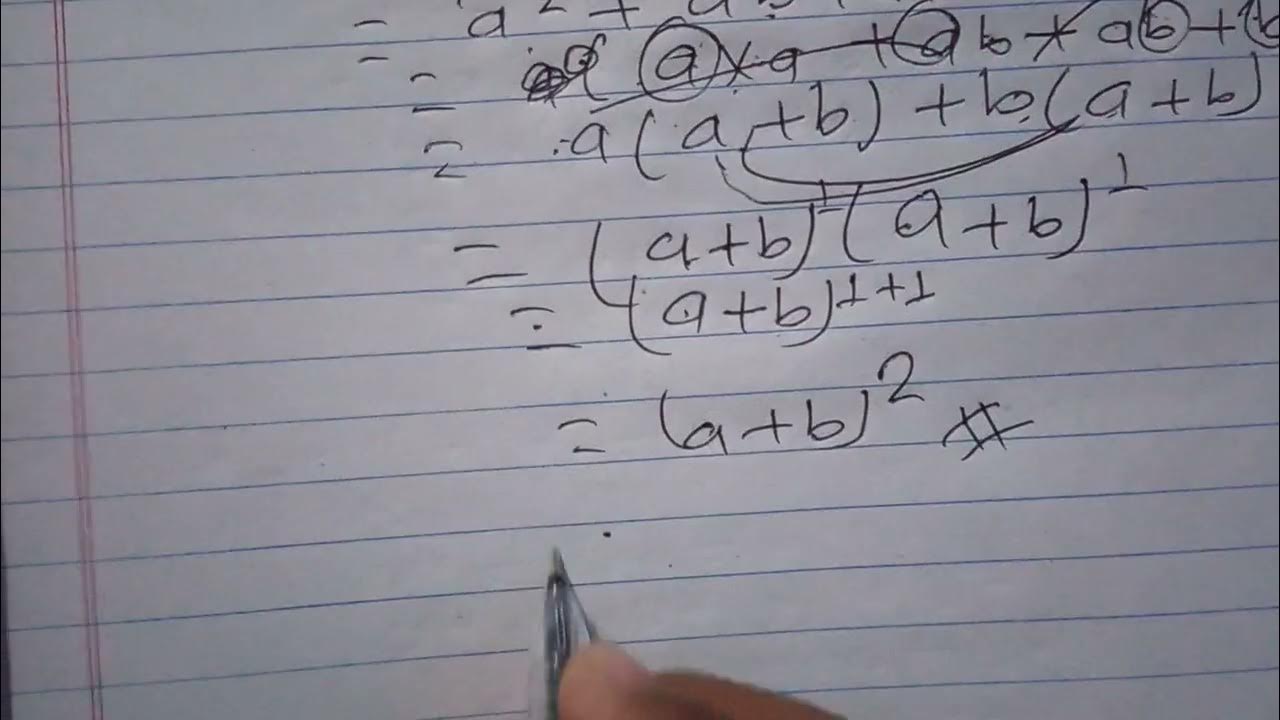 = a² + a
= a × a + ab + ab +
= a(a+b) + b(a+b)
= (a+b)¹(a+b)¹
= (a+b)¹⁺¹
= (a+b)²